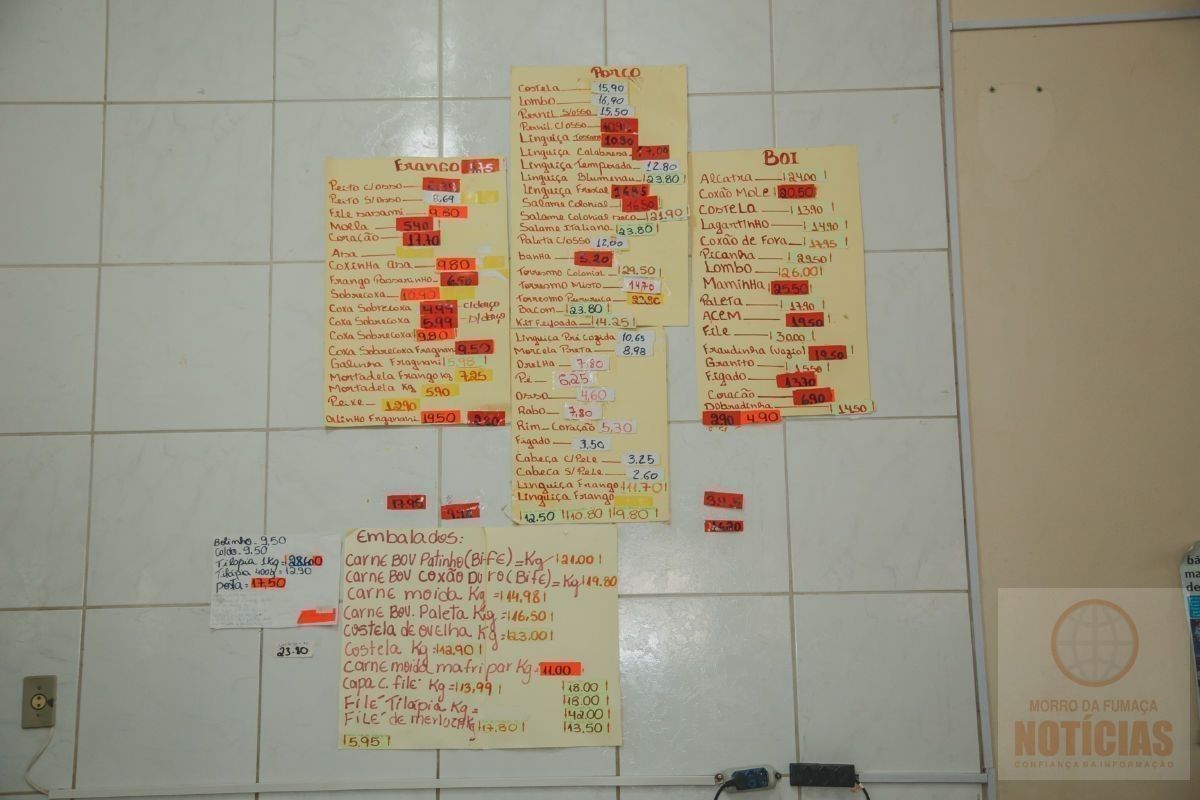 Porco
Costela 15,90
Lombo 16,90
Pernil s/osso 15,50
Pernil c/osso
Linguiça 10.90
Linguiça Calabresa 17,00
Linguiça Temperada 12.80
Linguiça Blumenau 23.80
Linguiça
Salame Colonial 16.50
Salame Colonial 21.90
Salame Italiano 23.80
Paleta c/osso 12,00
Banha 5.20
Torresmo Colonial 29.50
Torresmo Misto 14.70
Torresmo Pururuca
Bacom 23.80
Kit Feijoada 14.25
Linguiça Pré Cozida 10,65
Morcela Preta 8,98
Orelha 7.80
Pé 6,25
Osso 4,60
Rabo 7,80
Rim - Coração 5,30
Figado 3,50
Cabeça c/Pele 3.25
Cabeca s/Pele 2.60
Linguiça Frango 11.70
Linguiça Frango
12.50 10.80 9.80
Frango
Peito c/osso
Peito s/osso 8,69
File sassami 9.50
Moela 5.40
Coração 17.70
Asa
Coxinha Asa 9.80
Frango Passarinho 6.50
Sobrecoxa 10.90
Coxa Sobrecoxa 4.99
Coxa Sobrecoxa 5.99
Coxa Sobrecoxa 9.80
Coxa Sobrecoxa Fragnani 9.50
Galinha Fragnani
Mortadela Frango Kg 7,25
Mortadela Kg 5.90
Peixe 12.90
Fragnani 19.50
BOI
Alcatra 24.00
Coxão Mole 20.50
Costela 13.90
Lagartinho 14.90
Coxão de Fora 17.95
Picanha 29.50
Lombo 26.00
Maminha 25.50
Paleta 17.90
Acem 19.50
File 30.00
Fraudinha (Vazio) 19.50
Granito 15.50
Figado 13.70
Coração 6.90
Dobradinha 14.50
4.90
17.95
Bolinho - 9,50
Caldo - 9,50
Tilapia 1Kg = 28.00
Tilapia 400g = 12.90
Posta = 17,50
23.80
Embalados:
Carne Bov Patinho (Bife) = Kg 21.00
Carne Bov Coxão Duro (Bife) = Kg 19.80
Carne moída Kg = 14,98
Carne Bov. Paleta Kg = 16,50
Costela de ovelha Kg = 23.00
Costela Kg = 12.90
Carne moída mafripar Kg = 11.00
Capa c. filé Kg = 13,99 18.00
Filé Tilápia Kg = 18.00
42.00
Filé de merluza Kg 17.80 13,50
5.95
MORRO DA FUMAÇA
NOTÍCIAS
CONFIANÇA NA INFORMAÇÃO